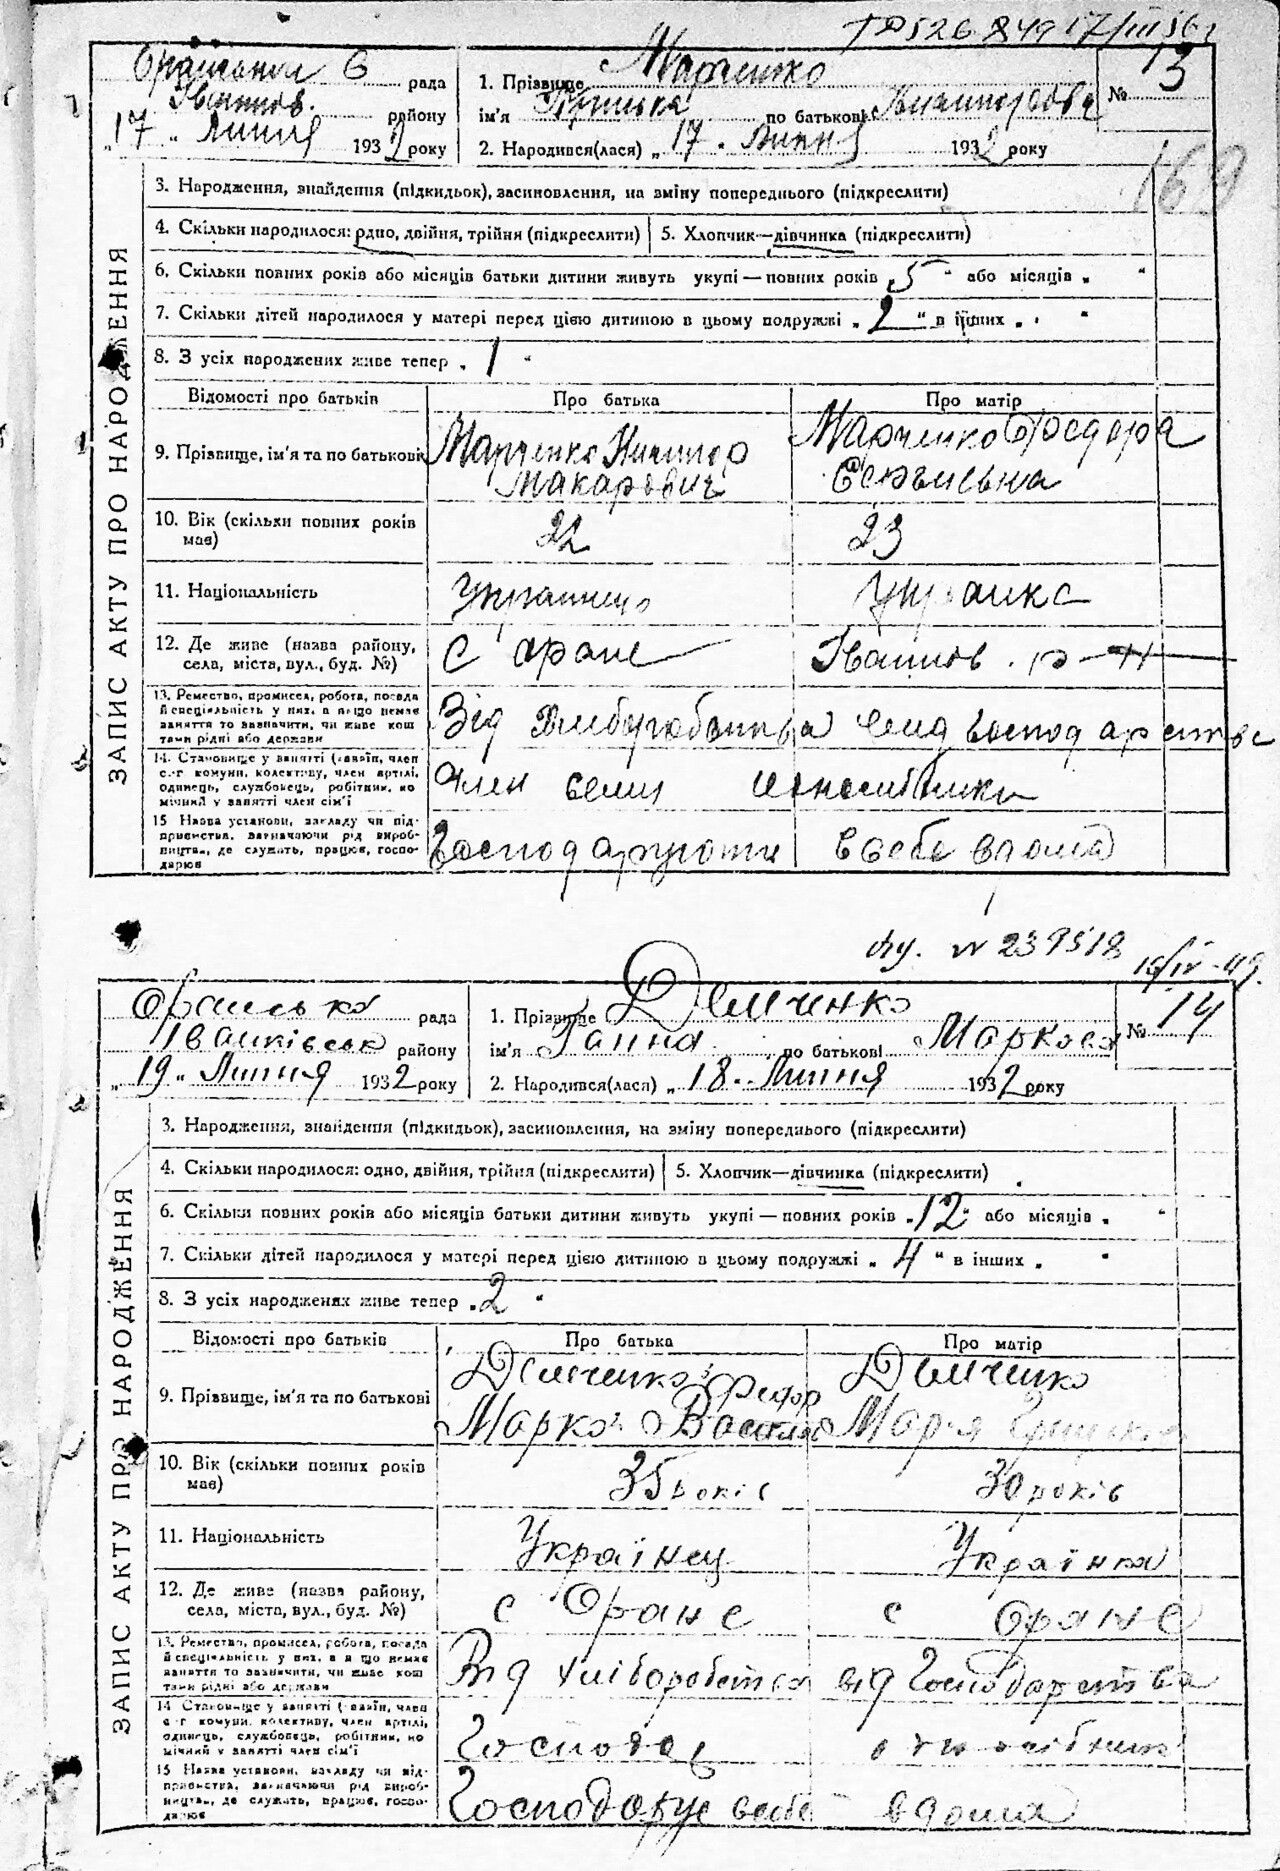 17/III 56
рада
1. Прізвище Марченко
№ 13
Іванков. району
ім'я по батькові Никипоровна
„17„ Липня 1932 року
2. Народився(лася) „17. Липня 1932 року
169
ЗАПИС АКТУ ПРО НАРОДЖЕННЯ
3. Народження, знайдення (підкидьок), засиновлення, на зміну попереднього (підкреслити)
4. Скільки народилося: одно, двійня, трійня (підкреслити)
5. Хлопчик—дівчинка (підкреслити)
6. Скільки повних років або місяців батьки дитини живуть укупі — повних років „5" або місяців „ "
7. Скільки дітей народилося у матері перед цією дитиною в цьому подружжі „2" в інших „ "
8. З усіх народжених живе тепер „1"
Відомості про батьків
Про батька
Про матір
9. Прізвище, ім'я та по батькові
Марченко Никипор
Макарович
Марченко Федора
10. Вік (скільки повних років
має)
22
23
11. Національність
Українець
Українка
12. Де живе (назва району,
села, міста, вул., буд. №)
с Оране
Іванков. р-н
13. Ремество, промисел, робота, посада
й спеціяльність у них, а якщо немає
заняття то зазначити, чи живе кош
тами рідні або держави
Від
14. Становище у занятті (хазяїн, член
с.-г комуни, колективу, член артілі,
одинець, службовець, робітник, по
мічний у занятті член сім'ї
член семи
15 Назва установи, закладу чи під-
приємства, зазначаючи рід вироб-
ництва, де служить, працює, госпо-
дарює
Господарюють в себе вдома
№ 239518
14/IV-49.
Оранська рада
1. Прізвище Демченко
№ 14
Іванківська району
ім'я Ганна по батькові Маркова
„19„ Липня 1932 року
2. Народився(лася) „18. Липня 1932 року
ЗАПИС АКТУ ПРО НАРОДЖЕННЯ
3. Народження, знайдення (підкидьок), засиновлення, на зміну попереднього (підкреслити)
4. Скільки народилося: одно, двійня, трійня (підкреслити)
5. Хлопчик—дівчинка (підкреслити)
6. Скільки повних років або місяців батьки дитини живуть укупі — повних років „12" або місяців „ "
7. Скільки дітей народилося у матері перед цією дитиною в цьому подружжі „4" в інших „ "
8. З усіх народженях живе тепер „2"
Відомості про батьків
Про батька
Про матір
9. Прізвище, ім'я та по батькові
Демченко Федор
Марко
Демченко
Мар'я
10. Вік (скільки повних років
має)
35 років
30 років
11. Національність
Українец
Українка
12. Де живе (назва району,
села, міста, вул., буд. №)
с Оране
с Оране
13. Ремество, промисел, робота, посада
й спеціяльність у них, а якщо немає
заняття то зазначити, чи живе кош
тами рідні або держави
Від хліборобства
від Господарства
14 Становище у занятті (хазяїн, член
с.-г комуни, колективу, член артілі,
одинець, службовець, робітник, по
мічний у занятті член сім'ї
Господар
15 Назва установи, закладу чи під-
приємства, зазначаючи рід вироб-
ництва, де служить, працює, госпо-
дарює
Господарує в себе вдома